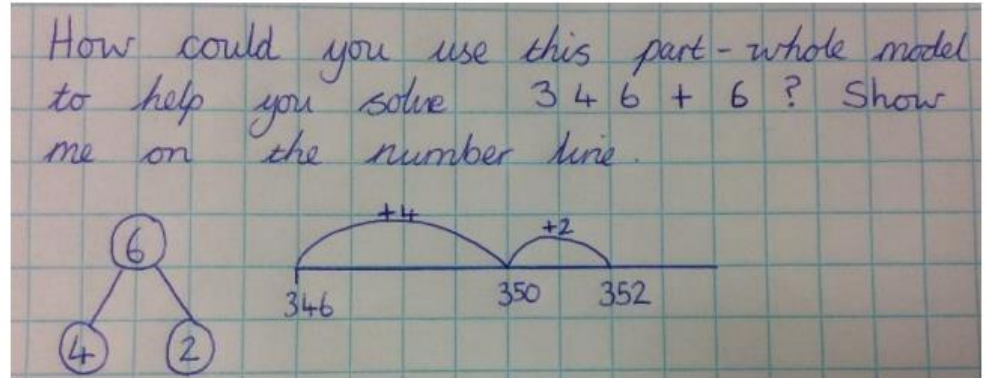 How could you use this part-whole model
to help you solve 346 + 6 ? Show
me on the number line.
6
4 2
+4 +2
346 350 352